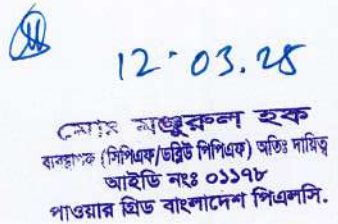 12.03.25
মোঃ মঞ্জুরুল হক
ব্যবস্থাপক (সিপিএফ/ডব্লিউ পিপিএফ) অতিঃ দায়িত্ব
আইডি নংঃ ০১১৭৮
পাওয়ার গ্রিড বাংলাদেশ পিএলসি.